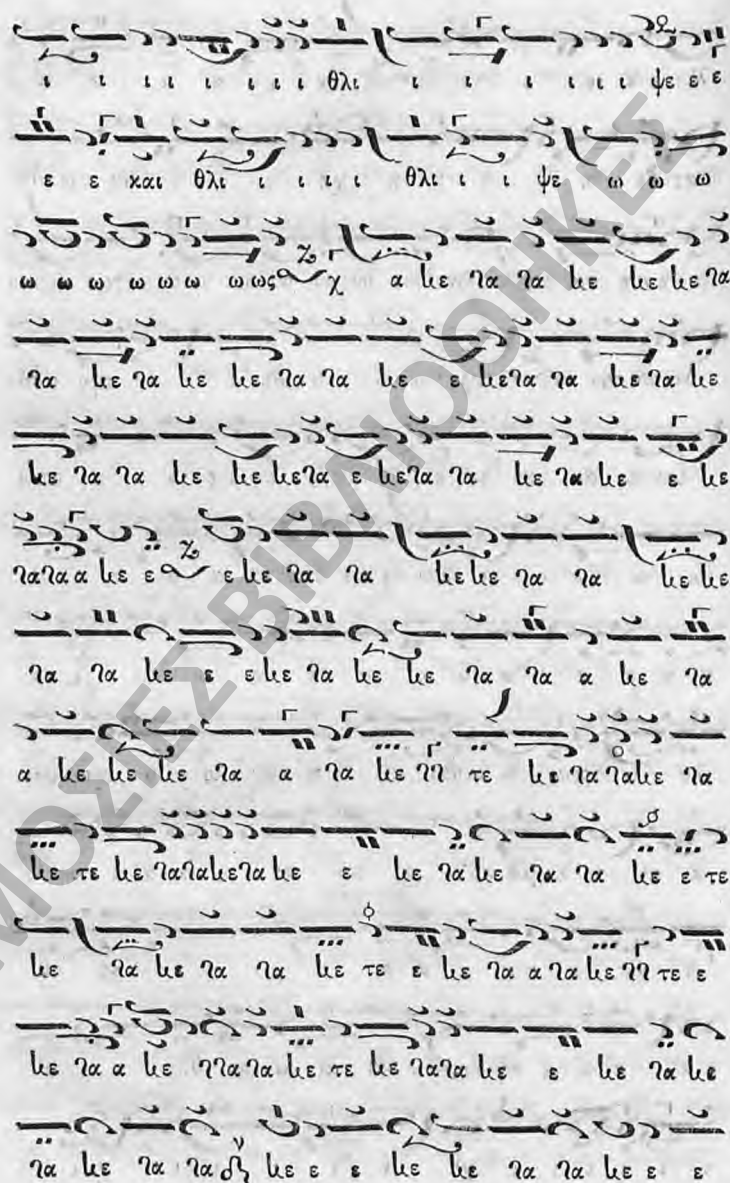 ι ι ι ι ι ι ι θλι ι ι ι ι ι ι ψε ε ε
ε ε και θλι ι ι ι ι θλι ι ι ψε ω ω ω
ω ω ω ω ω ω ω ως χ α κε τα τα κε κε κε τα
τα κε τα κε κε τα τα κε ε κε τα τα κε τα κε
κε τα τα κε κε κε τα ε κε τα τα κε τα κε ε κε
τα τα α κε ε ε κε τα τα κε κε τα τα κε κε
τα τα κε ε ε κε τα κε κε τα τα α κε τα
α κε κε κε τα α τα κε ττ τε κε τα τα κε τα
κε τε κε τα τα κε τα κε ε κε τα κε τα τα κε ε τε
κε τα κε τα τα κε τε ε κε τα α τα κε ττ τε ε
κε τα α κε τ τα τα κε τε κε τα τα κε ε κε τα κε
τα κε τα τα κε ε ε κε κε τα τα κε ε ε
ΜΟΣΙΕΣ ΒΙΒΛΙΟΘΗΚΕΣ